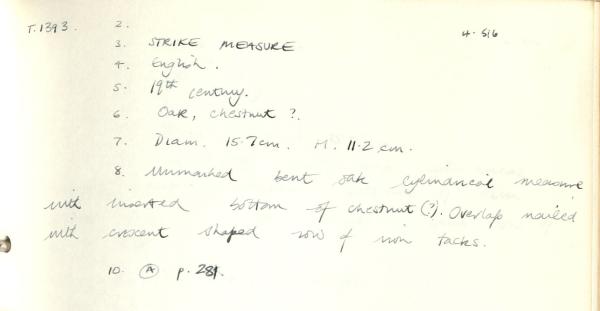 T.1393. 2. 4.516
3. STRIKE MEASURE
4. English.
5. 19th century.
6. Oak, chestnut ?.
7. Diam. 15.7cm. H. 11.2 cm.
8. Unmarked bent oak cylindrical measure
with inserted bottom of chestnut (?). Overlap nailed
with crescent shaped row of iron tacks.
10. (A) p. 281.